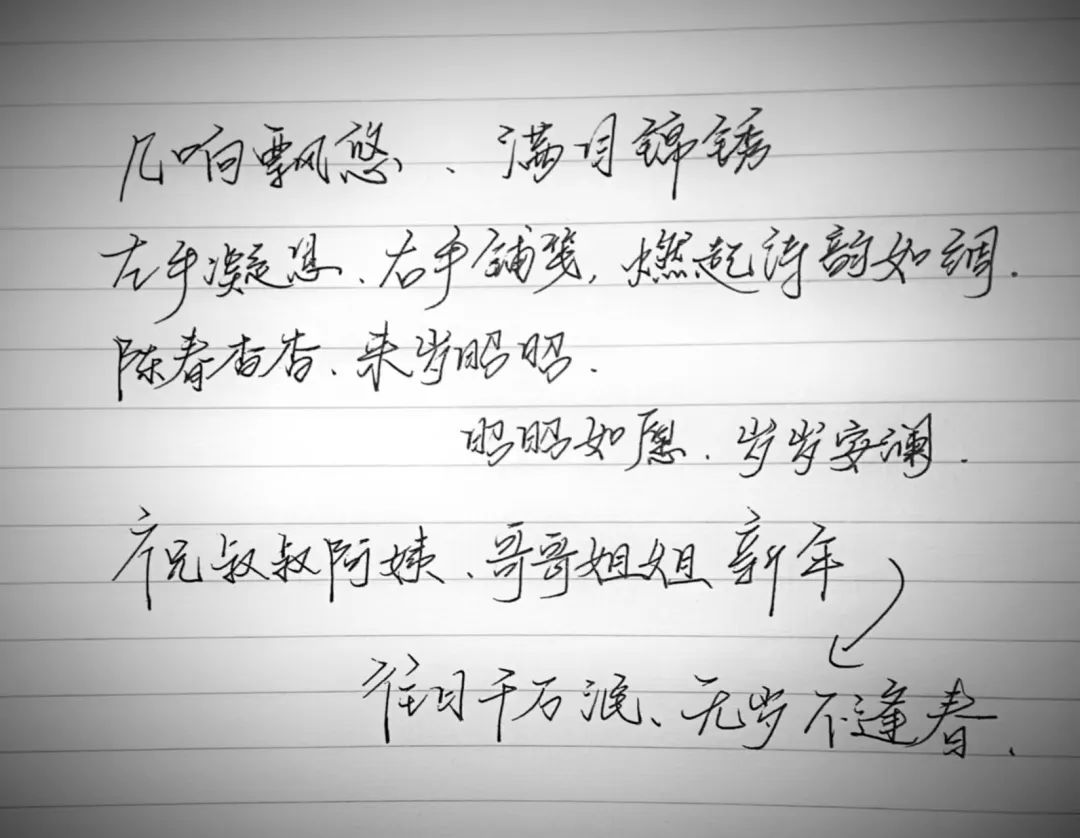 几响飘悠、满月锦锈
左手凝思、右手铺笺,燃起诗韵如调.
陈春杳杳、来岁昭昭.
昭昭如愿、岁岁安澜.
祝叔叔阿姨、哥哥姐姐新年
往日千万泯、无岁不逢春.